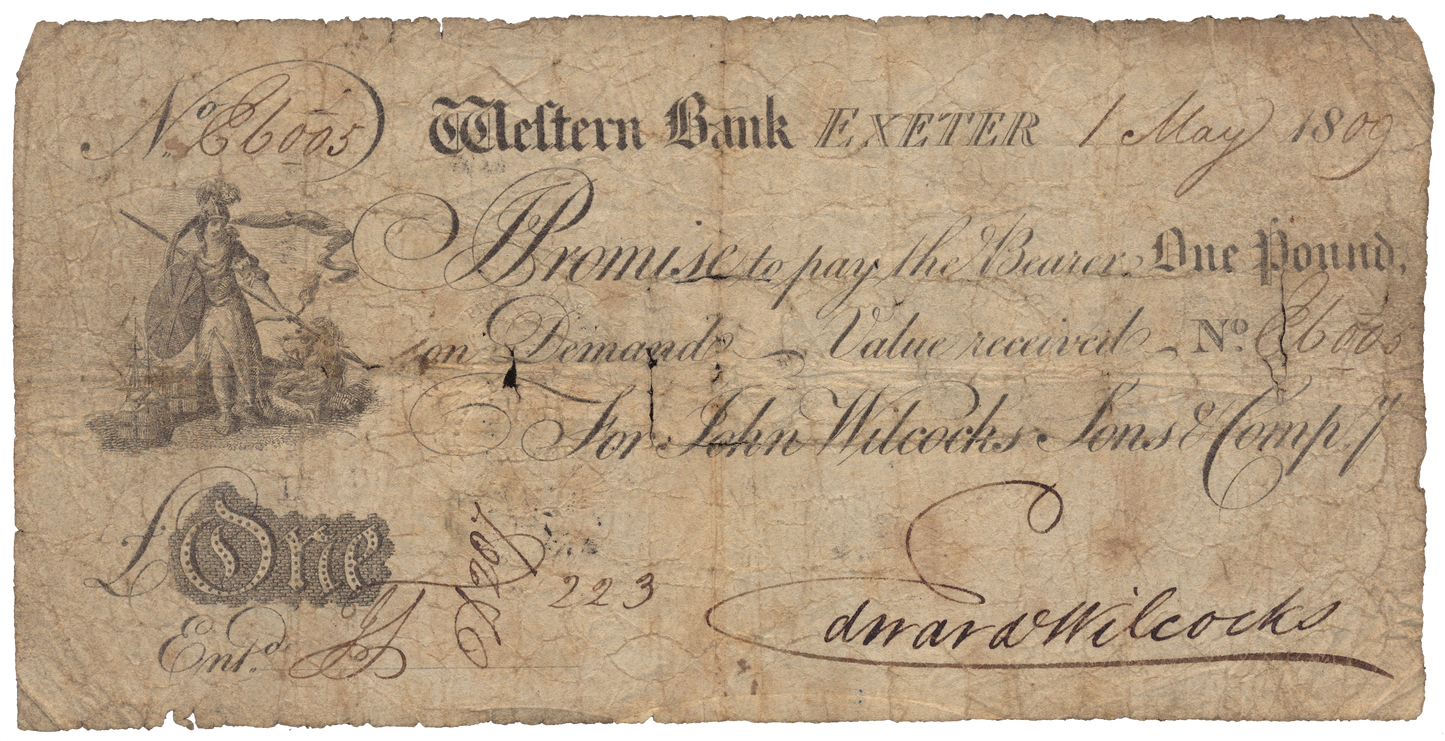 No E6005 Weſtern Bank EXETER 1 May 1809
I Promise to pay the Bearer One Pound,
on Demand Value received No. E6005
For John Wilcocks Sons & Comp.y
£ One
D207
223
Edward Wilcocks
Ent.d